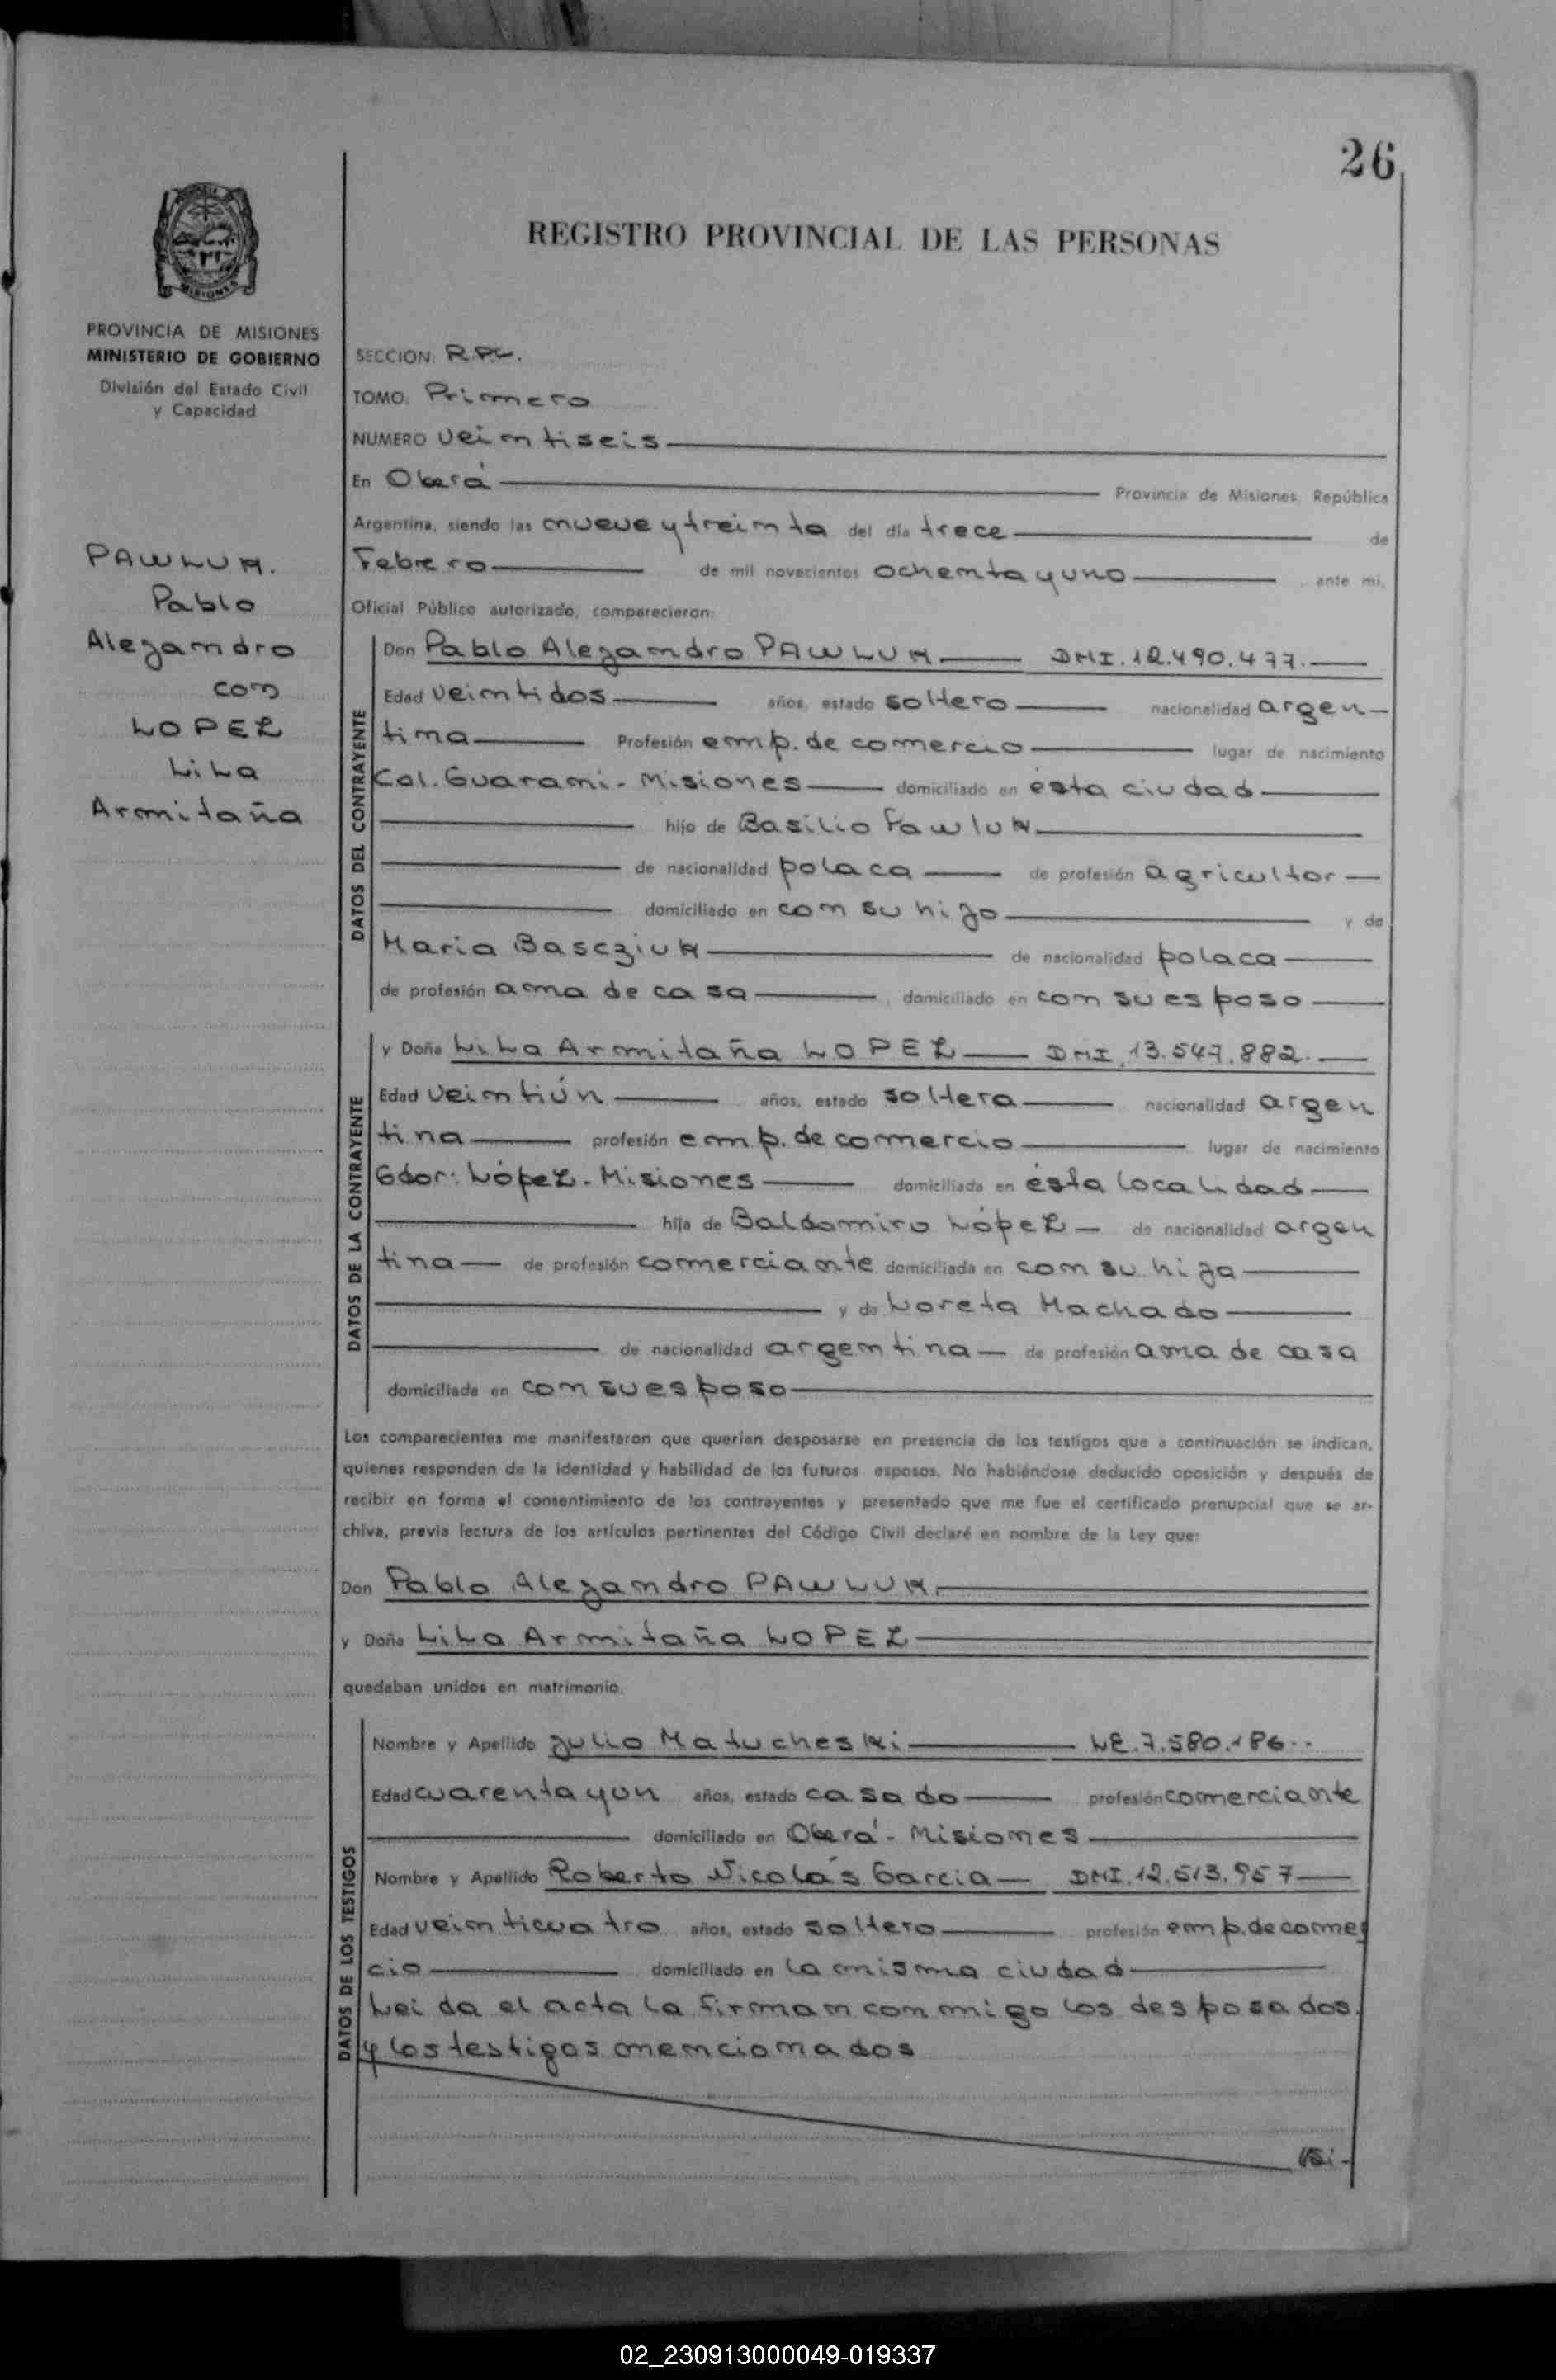 26
REGISTRO PROVINCIAL DE LAS PERSONAS
MISIONES
PROVINCIA DE MISIONES
MINISTERIO DE GOBIERNO
División del Estado Civil
y Capacidad
PAWLUK.
Pablo
Alejandro
con
LOPEZ
Lila
Armitaña
SECCION: R.P.C.
TOMO: Primero
NUMERO veintiseis
En Oberá Provincia de Misiones, República
Argentina, siendo las nueve y treinta del día trece de
Febrero de mil novecientos ochenta y uno ante mi,
Oficial Público autorizado, comparecieron:
DATOS DEL CONTRAYENTE
Don Pablo Alejandro PAWLUK DNI. 12.490.477.
Edad veintidos años, estado soltero nacionalidad argen-
tina Profesión emp. de comercio lugar de nacimiento
Col. Guarani - Misiones domiciliado en ésta ciudad
hijo de Basilio Pawluk
de nacionalidad polaca de profesión agricultor
domiciliado en con su hijo y de
Maria Bascziuk de nacionalidad polaca
de profesión ama de casa domiciliado en con su esposo
DATOS DE LA CONTRAYENTE
y Doña Lila Armitaña LOPEZ DNI. 13.547.882.
Edad veintiún años, estado soltera nacionalidad argen
tina profesión emp. de comercio lugar de nacimiento
Gdor: López - Misiones domiciliada en ésta localidad
hija de Baldomiro López de nacionalidad argen
tina de profesión comerciante domiciliada en con su hija
y de Loreta Machado
de nacionalidad argentina de profesión ama de casa
domiciliada en con su esposo
Los comparecientes me manifestaron que querían desposarse en presencia de los testigos que a continuación se indican,
quienes responden de la identidad y habilidad de los futuros esposos. No habiéndose deducido oposición y después de
recibir en forma el consentimiento de los contrayentes y presentado que me fue el certificado prenupcial que se ar-
chiva, previa lectura de los artículos pertinentes del Código Civil declaré en nombre de la Ley que:
Don Pablo Alejandro PAWLUK.
y Doña Lila Armitaña LOPEZ
quedaban unidos en matrimonio.
DATOS DE LOS TESTIGOS
Nombre y Apellido Julio Matucheski LE. 7.580.186..
Edad cuarenta y un años, estado casado profesión comerciante
domiciliado en Oberá - Misiones
Nombre y Apellido Roberto Nicolás Garcia DNI. 12.513.957
Edad veinticuatro años, estado soltero profesión emp. de comer
cio domiciliado en la misma ciudad
Leida el acta la firman conmigo los desposados.
y los testigos mencionados
02_230913000049-019337